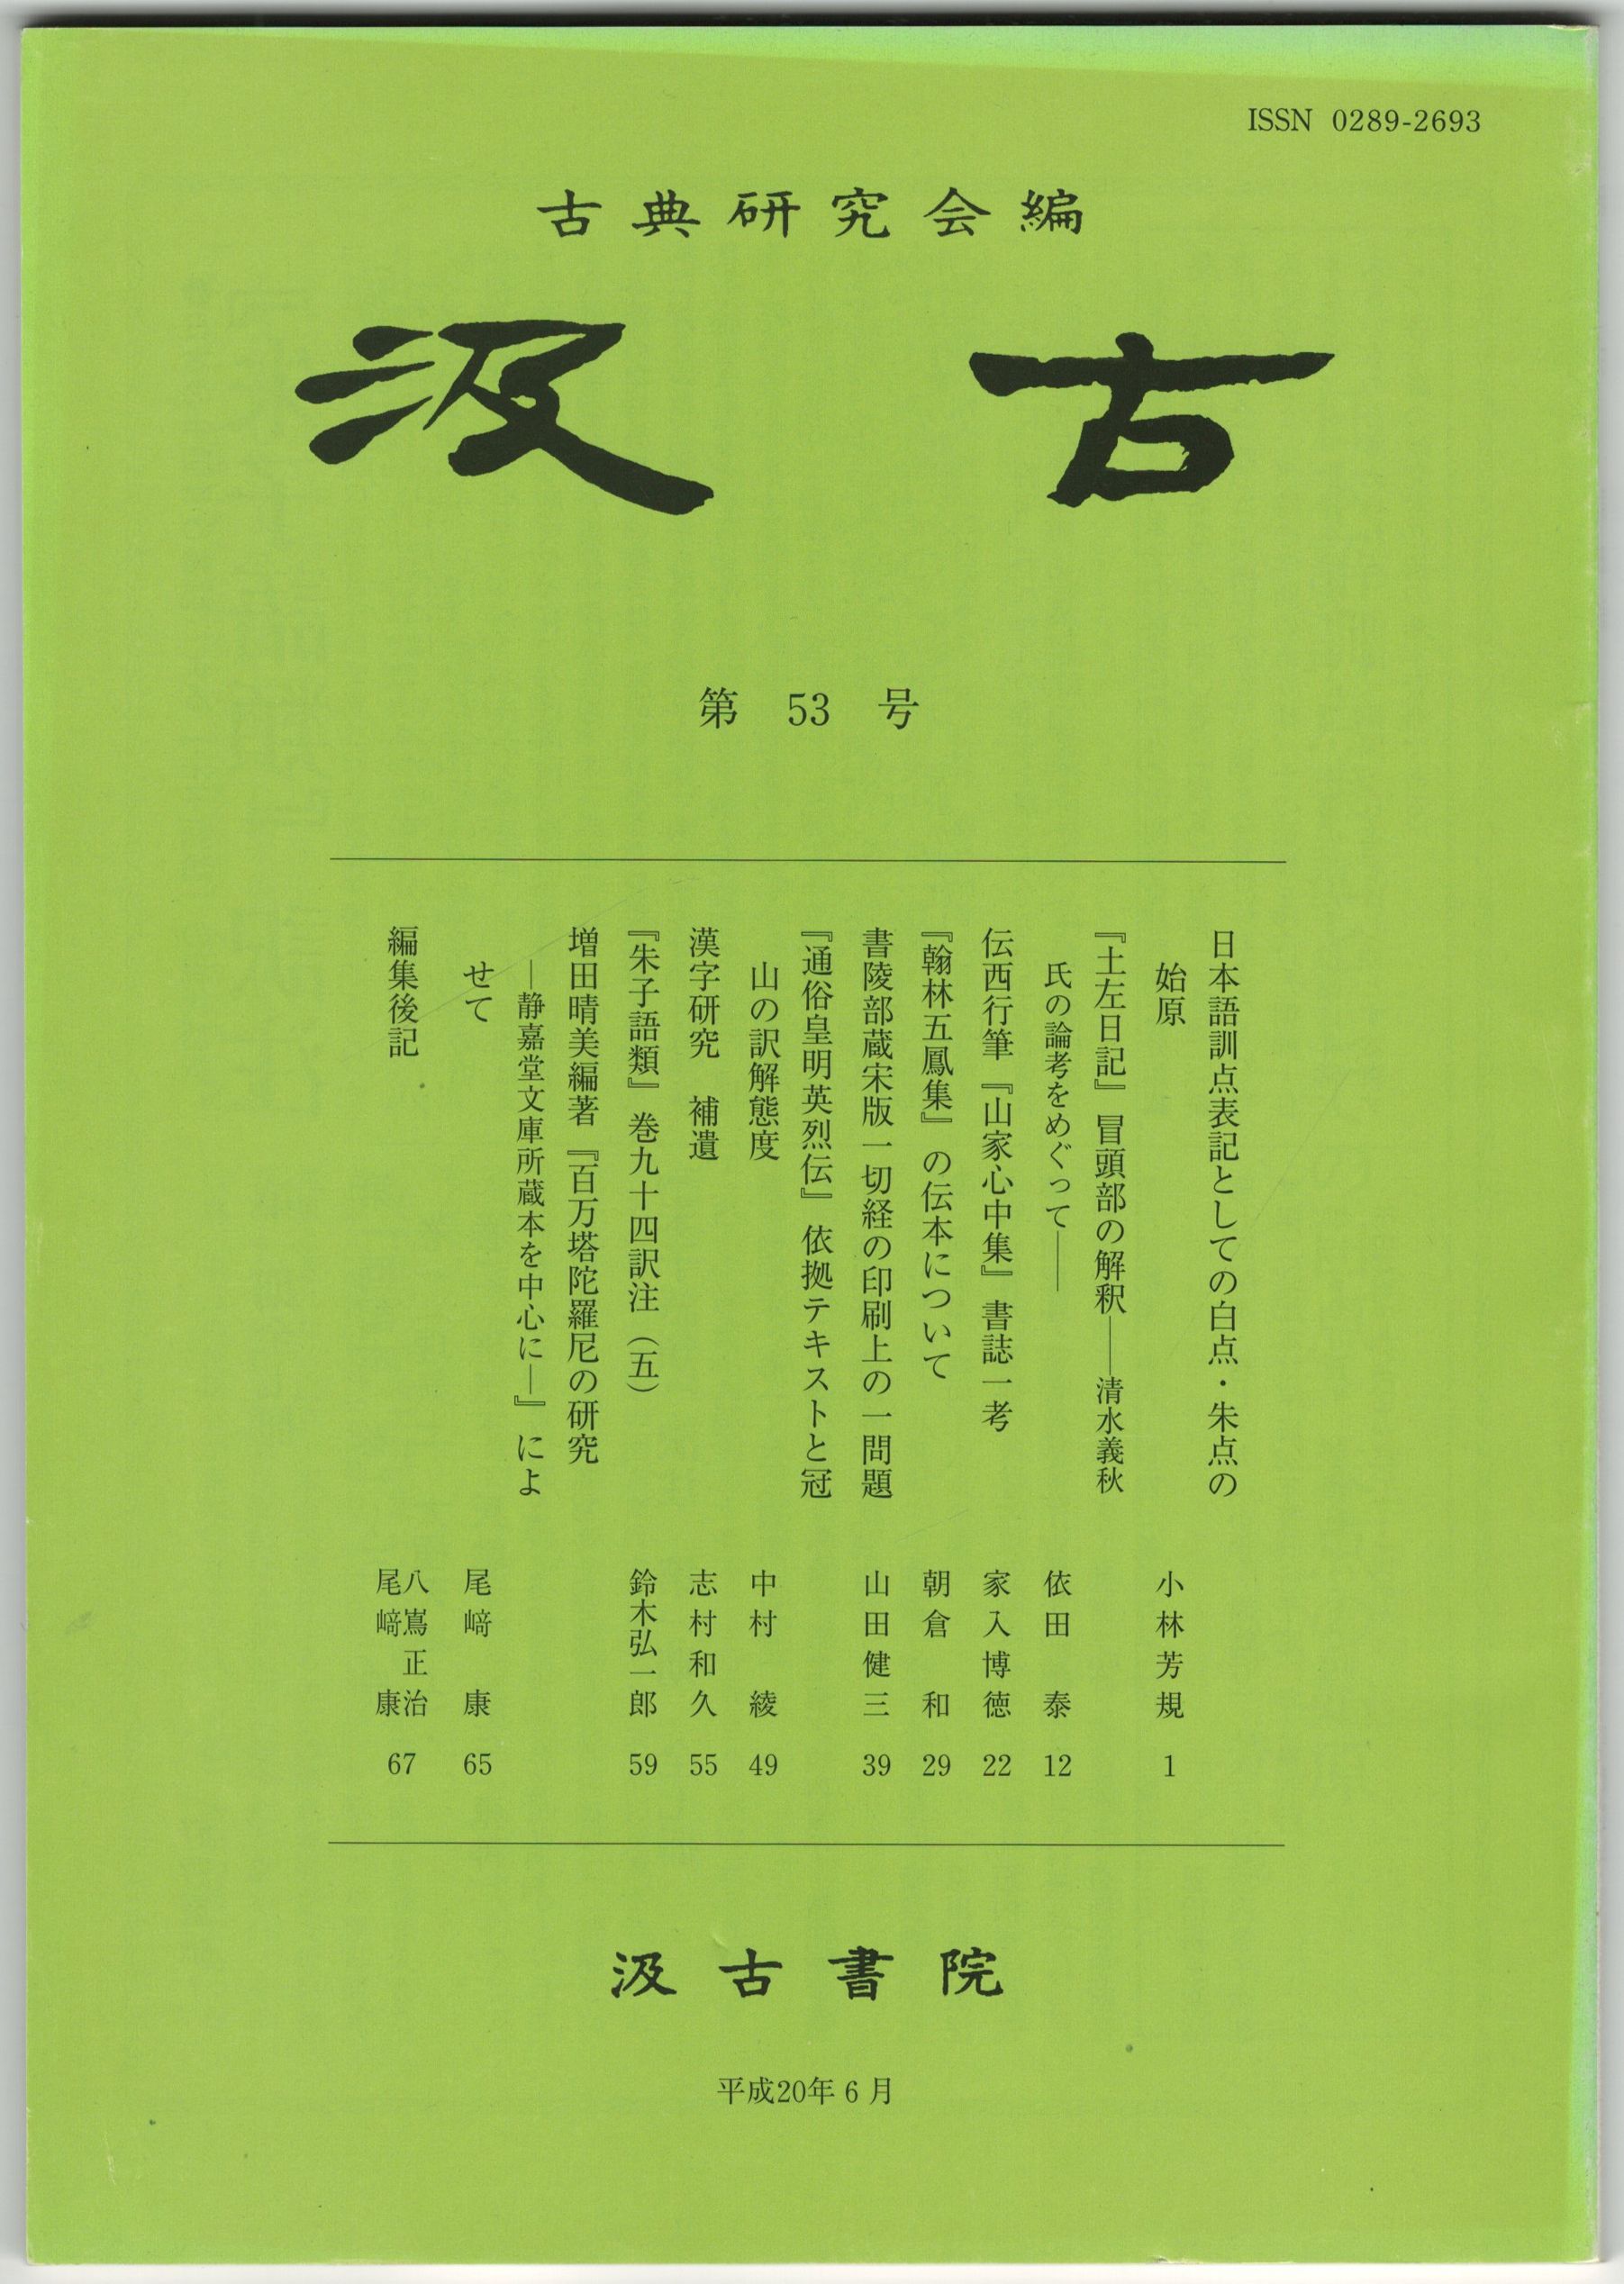 ISSN 0289-2693
古典研究会編
汲古
第 53 号
日本語訓点表記としての白点・朱点の
始原 小林芳規 1
『土左日記』冒頭部の解釈――清水義秋
氏の論考をめぐって―― 依田 泰 12
伝西行筆『山家心中集』書誌一考 家入博徳 22
『翰林五鳳集』の伝本について 朝倉 和 29
書陵部蔵宋版一切経の印刷上の一問題 山田健三 39
『通俗皇明英烈伝』依拠テキストと冠
山の訳解態度 中村 綾 49
漢字研究 補遺 志村和久 55
『朱子語類』巻九十四訳注(五) 鈴木弘一郎 59
増田晴美編著『百万塔陀羅尼の研究
―静嘉堂文庫所蔵本を中心に―』によ
せて 尾﨑 康 65
編集後記 八嶌正治
尾﨑 康 67
汲古書院
平成20年6月